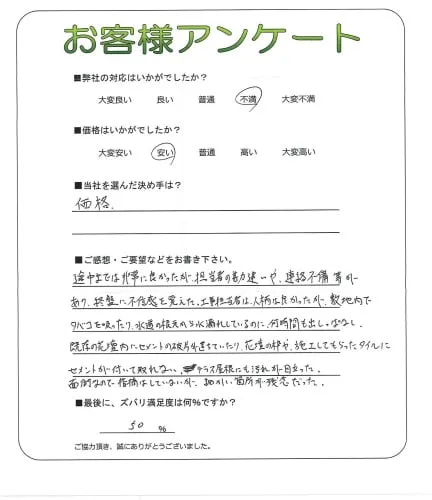 お客様アンケート
■弊社の対応はいかがでしたか？
大変良い 良い 普通 不満 大変不満
■価格はいかがでしたか？
大変安い 安い 普通 高い 大変高い
■当社を選んだ決め手は？
価格.
■ご感想・ご要望などをお書き下さい。
途中までは非常に良かったが、担当者の勘違いや、連絡不備等が
あり、終盤に不信感を覚えた。工事担当者は、人柄は良かったが、敷地内で
タバコを吸ったり、水道の根元から水漏れしているのに、何時間も出しっぱなし。
既存の花壇内にセメントの破片が落ちていたり、花壇の枠や、施工してもらったタイルに
セメントが付いて取れない、テラス屋根にも汚れが目立った。
面倒なので指摘はしていないが、細かい箇所が残念だった。
■最後に、ズバリ満足度は何%ですか？
50 %
ご協力頂き、誠にありがとうございました。